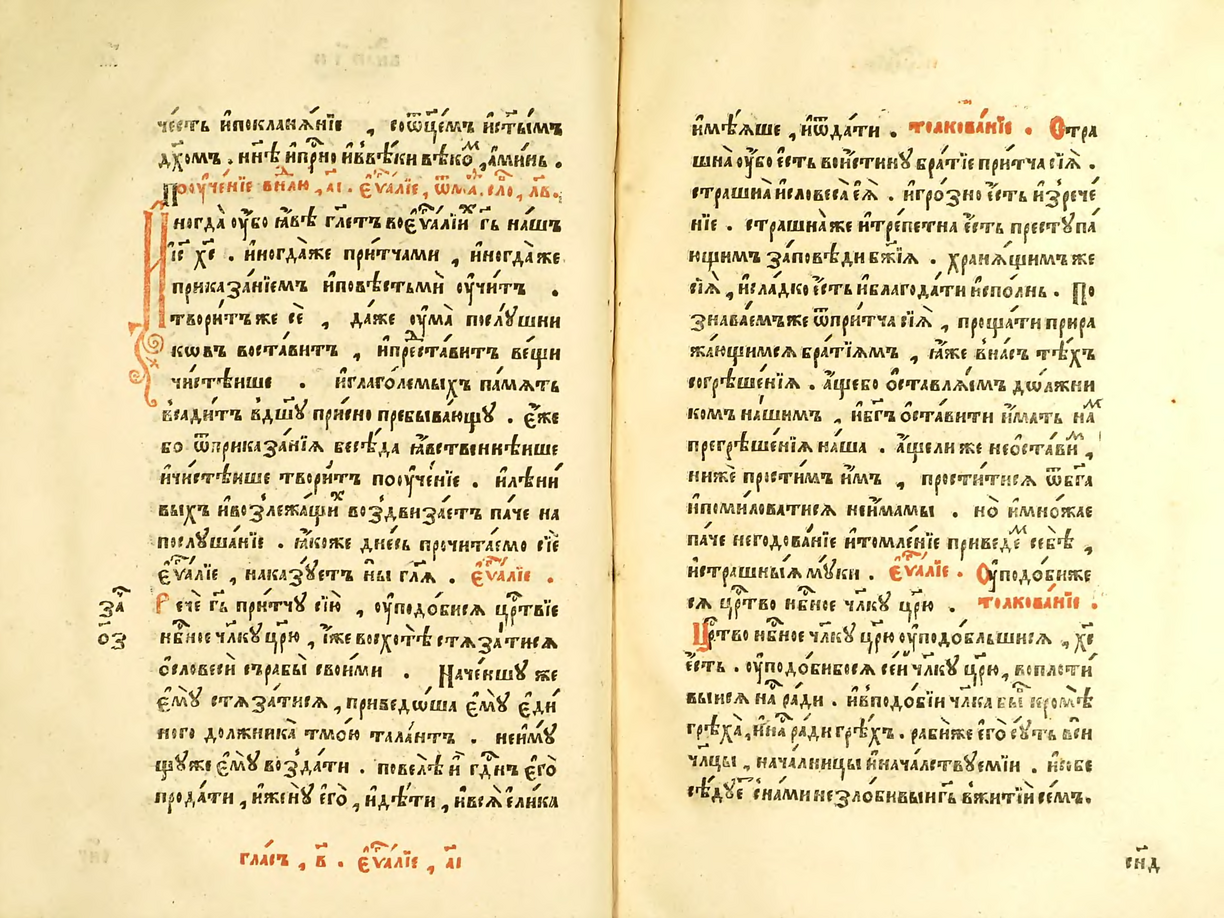 че́сть и҆покланѧ́нїе , соѿц҃е́мъ и҆ст҃ы́мъ
дх҃омъ . нн҃ѣ и҆при́но и҆ввѣ́ки вѣко́м , а҆ми́нь .
Поꙋче́нїе внл҃ю , а҃і . є҆ѵа́лїе , ѿм҃а . сло҃ , лв҃ .
Иногда̀ оу҆́бо ꙗ҆́вѣ гл҃етъ воє҆ѵа́лїих гь҃ на́шъ
і҆с҃ хс҃ . и҆ногда́же при́тчами , и҆ногда́же
приказа́нїемъ и҆по́вѣстьмѝ оу҆чи́тъ .
твори́тъже сѐ , да́же оу҆ма̀ послꙋ́шни
кѡвъ воста́витъ , и҆преста́витъ ве́щи
чистѣ́йше . и҆глаго́лемыхъ па́мѧть
всади́тъ вдш҃ꙋ при́сно пребыва́ющꙋ . є҆́же
бо ѿприказа́нїѧ бесѣ́да ꙗ҆́вственнѣйше
и҆чистѣ́йше твори́тъ поꙋче́нїе . и҆лѣни́
выхъ и҆возлежа́щих воздвиза́етъ па́че на
послꙋша́нїе . ꙗ҆́коже дне́сь прочита́емо сїѐ
є҆ѵа́лїе , наказꙋ́етъ ны̀ гл҃ѧ . є҆ѵа́лїе .
за҃ Речѐ гь҃ при́тчꙋ сїю̀ , оу҆подо́бисѧ црт҃вїе
о҃з нбⷭ҇ное чл҃кꙋ цр҃ю , и҆́же восхотѣ̀ стѧза́тисѧ
ѡ҆словесѝ сърабы̀ свои́ми . Наче́ншꙋ же
є҆мꙋ̀ стѧза́тисѧ , приведо́ша є҆мꙋ̀ є҆ди́
ного должника̀ тмо́ю тала́нтъ . неи҆мꙋ́
щꙋже є҆мꙋ̀ возда́ти . повелѣ̀ и҆ гд҃нъ є҆го̀
прода́ти , и҆женꙋ̀ є҆го̀ , и҆дѣ́ти , и҆всѧ̀ є҆ли́ка
гла́съ , в҃ . є҆ѵа́лїе , а҃і
и҆мѣ́ѧше , и҆ѿда́ти . толкова́нїе . Стра
шна̀ оу҆́бо є҆́сть вои́стинꙋ бра́тїе при́тча сїѧ̀ .
стра́шна и҆словеса̀ сѧ̀ . и҆гро́зно є҆́сть и҆зрече́
нїе . стра́шна же и҆тре́петна є҆́сть престꙋпа́
ющимъ за́повѣди бж҃їѧ . хранѧ́щимъже
сїѧ̀ , и҆сла́дко є҆́сть и҆благода́ти и҆спо́лнь . По
знава́емъже ѿпри́тча сїѧ̀ , проща́ти прира
жа́ющимсѧ бра́тїѧмъ , ꙗ҆́же вна́съ тѣ́хъ
согрѣше́нїѧ . а҆́щебо ѡ҆ставлѧ́имъ дѡлжни
ко́мъ на́шимъ , и҆бг҃ъ ѡ҆ста́вити и҆́мать нам
прегрѣше́нїѧ на́ша . а҆́щели же неѡ҆ста́вим ,
нижѐ прости́мъ и҆́мъ , прости́тисѧ ѿбг҃а
и҆поми́ловатисѧ неи҆́мамы . но̀ и҆мно́жае
па́че негодова́нїе и҆томле́нїе приведе́м себѣ̀ ,
и҆стра́шныѧ мꙋ́ки . є҆ѵа́лїе . Оуподо́биже
сѧ цр҃тво нбⷭ҇ное чл҃кꙋ цр҃ю . толкова́нїе .
Цр҃тво нбⷭ҇ное чл҃кꙋ цр҃ю оу҆подо́бльшисѧ , хс҃
є҆́сть . оу҆подо́бибосѧ се́й чл҃кꙋ цр҃ю , воплоти́
выисѧ на́с ра́ди . и҆вподо́бїи чл҃ка бы́с кромѣ̀
грѣха̀ , и҆на́с ра́ди грѣ́хъ . рабѝже є҆го̀ сꙋ́ть всѝ
чл҃цы , нача́лницы и҆нача́лствꙋемїи . и҆собе
сѣ́дꙋет снами незло́бивыи гь҃ вжитїѝ се́мъ .
сн҃д